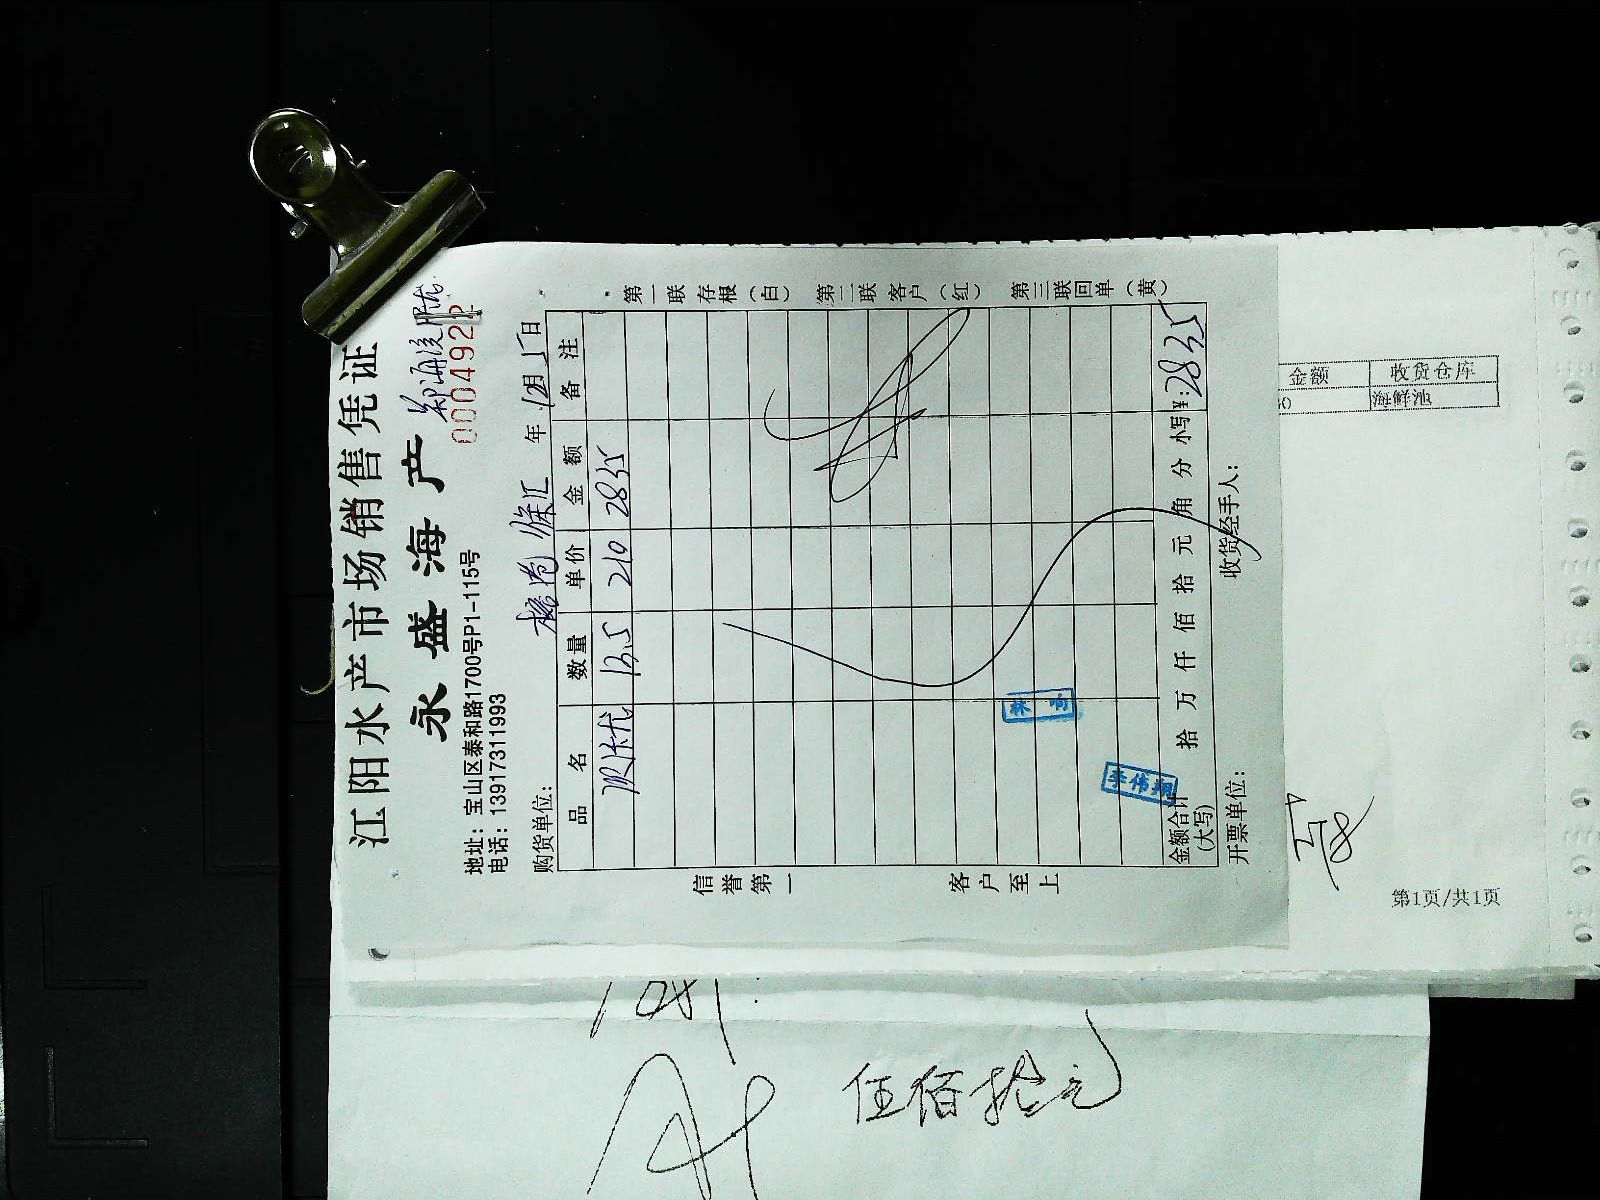 江阳水产市场销售凭证
永盛海产
0004922
地址：宝山区泰和路1700号P1-115号
电话：13917311993
购货单位： 徐汇 年 12月15日
品名 数量 单价 金额 备注
13.5 210 2835
金额合计（大写） 拾 万 仟 佰 拾 元 角 分 小写¥：2835
开票单位： 收货经手人：
信誉第一 客户至上
第一联存根（白） 第二联客户（红） 第三联回单（黄）
李伟翔
金额 收货仓库
海鲜池
第1页/共1页
伍佰拾元